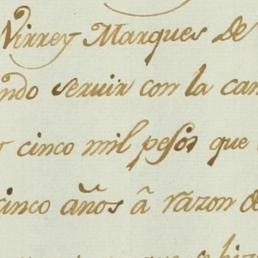 Virrey Marques de
ndo seruir con la can
y cinco mil pesos que
cinco años â razon de